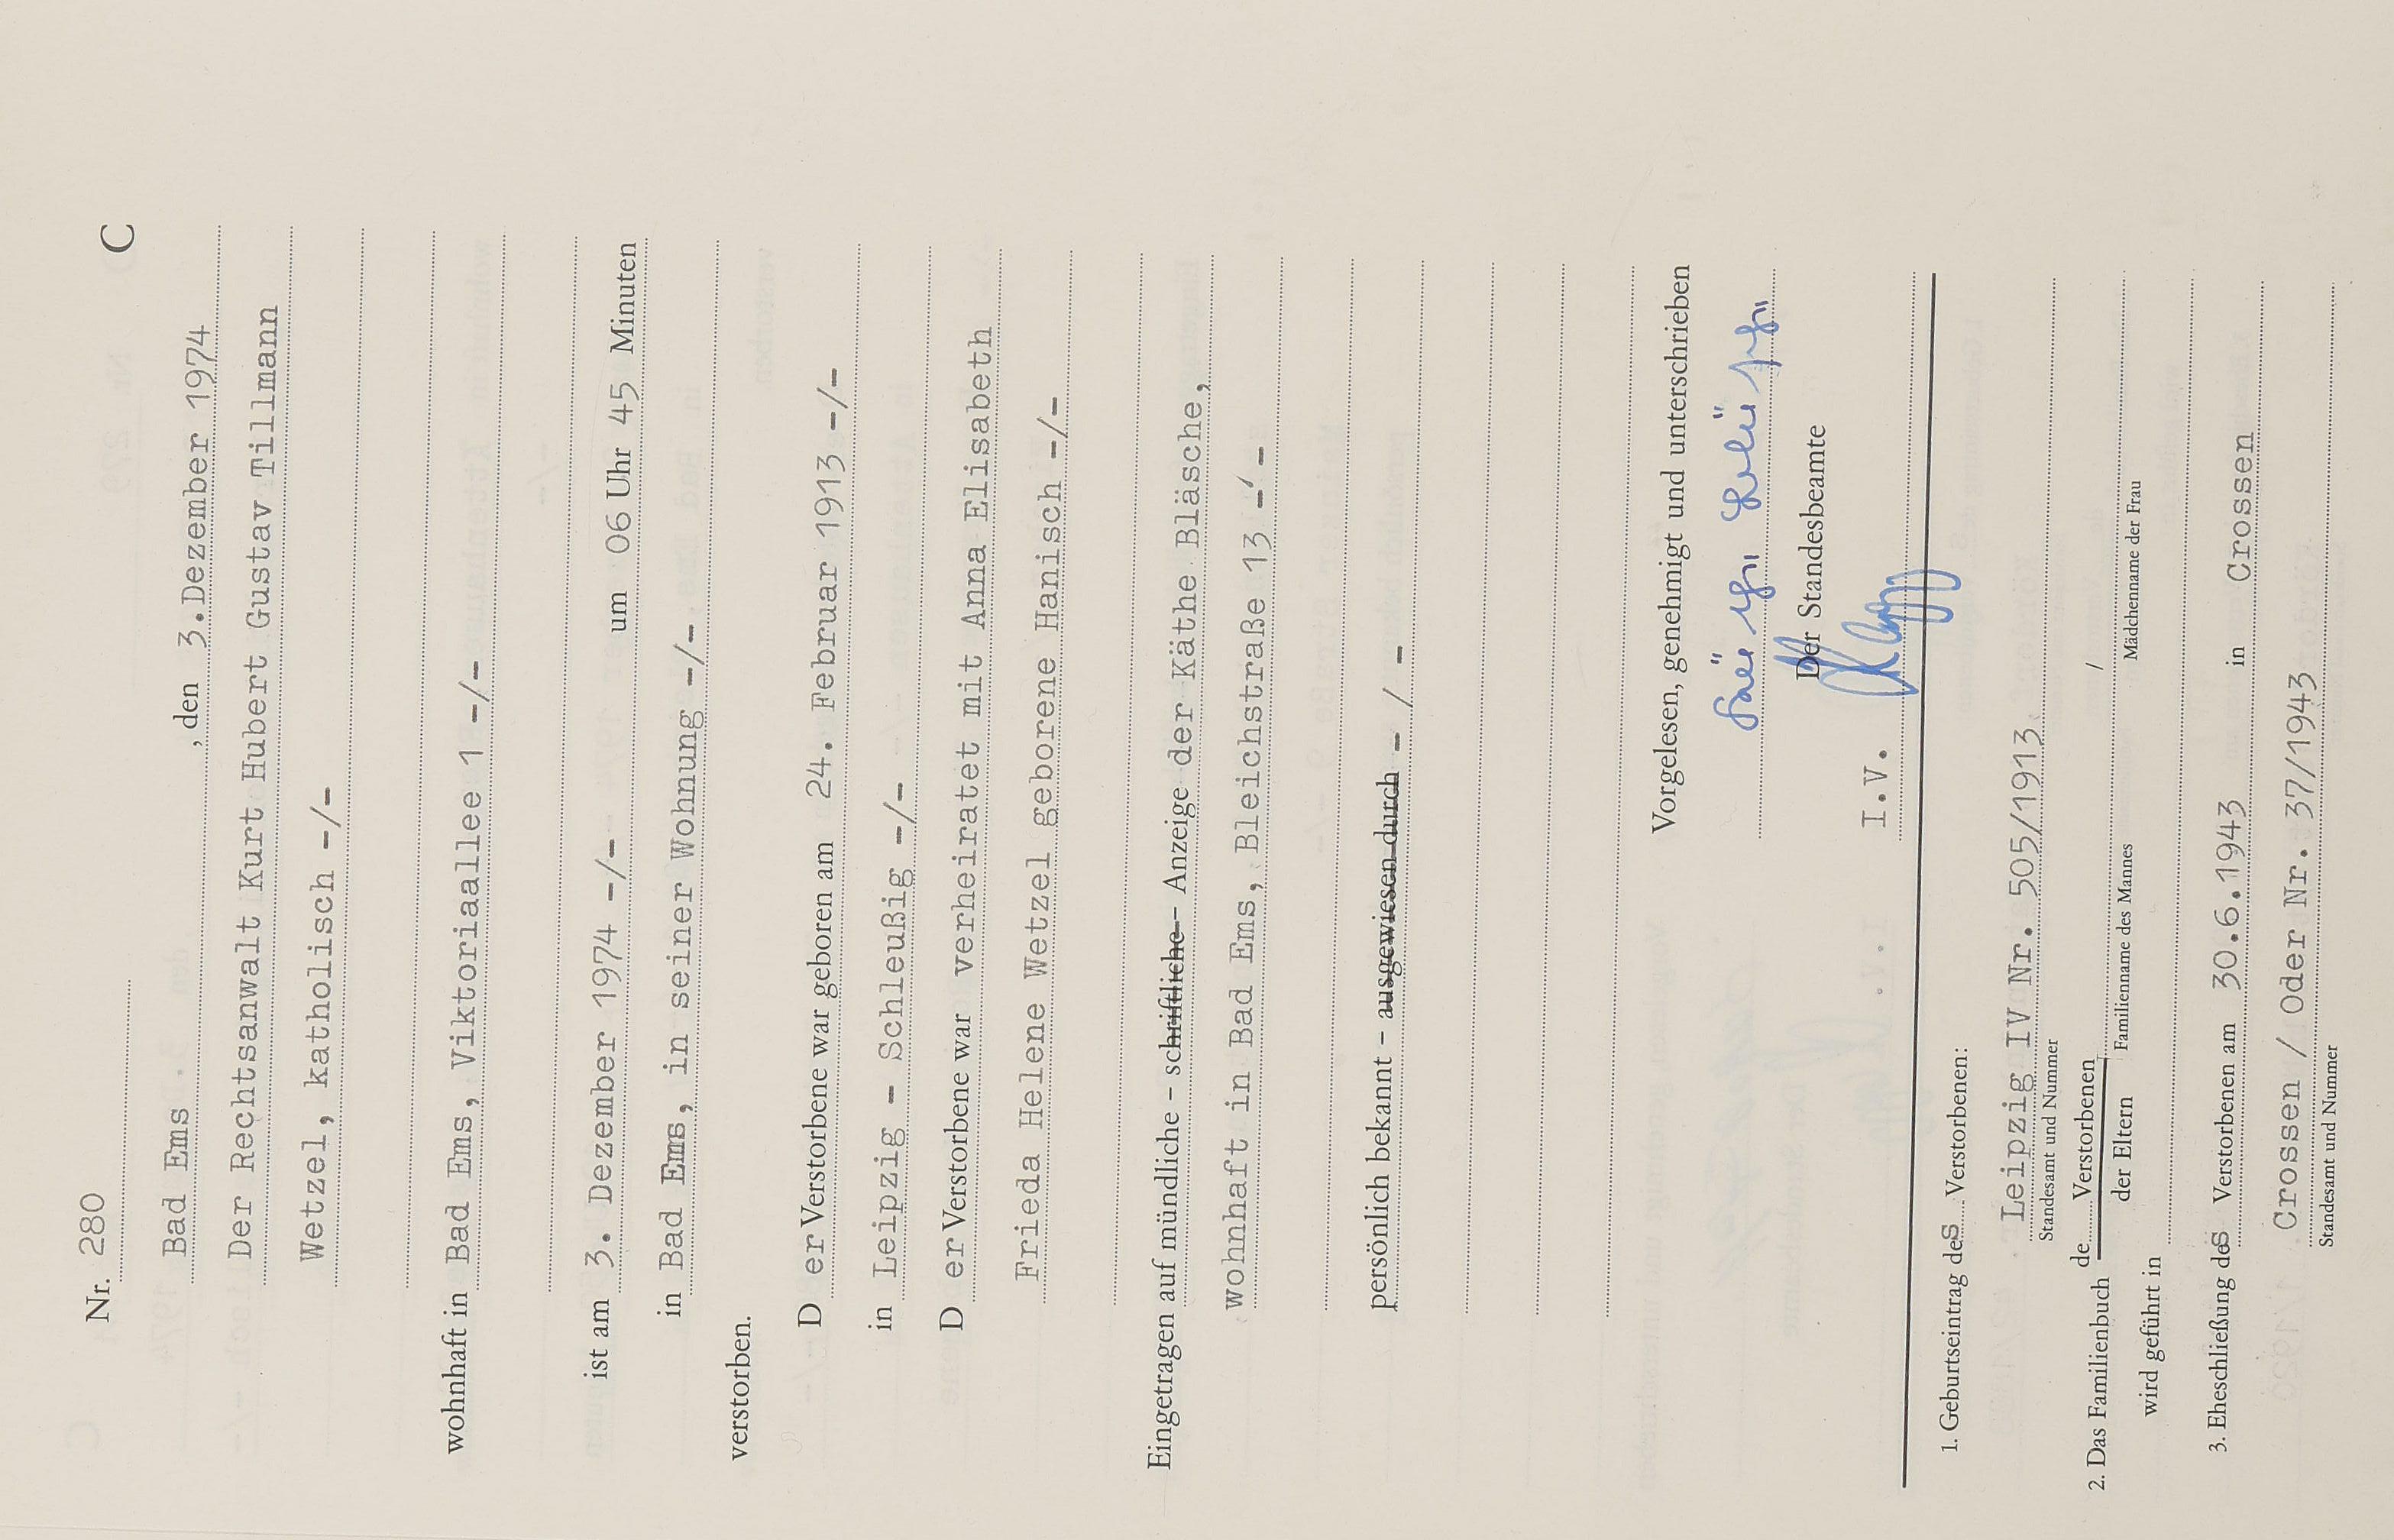 Nr. 280
C
Bad Ems, den 3.Dezember 1974
Der Rechtsanwalt Kurt Hubert Gustav Tillmann
Wetzel, katholisch -/-
wohnhaft in Bad Ems, Viktoriaallee 1 -/-
ist am 3. Dezember 1974 -/- um 06 Uhr 45 Minuten
in Bad Ems, in seiner Wohnung -/-
verstorben.
D er Verstorbene war geboren am 24. Februar 1913 -/-
in Leipzig - Schleußig -/-
D er Verstorbene war verheiratet mit Anna Elisabeth
Frieda Helene Wetzel geborene Hanisch -/-
Eingetragen auf mündliche – schriftliche – Anzeige der Käthe Bläsche,
wohnhaft in Bad Ems, Bleichstraße 13 -/-
persönlich bekannt – ausgewiesen durch - / -
Vorgelesen, genehmigt und unterschrieben
Der Standesbeamte
I.V.
1. Geburtseintrag des Verstorbenen:
Leipzig IV Nr. 505/1913
Standesamt und Nummer
2. Das Familienbuch de Verstorbenen
der Eltern
/
Familienname des Mannes Mädchenname der Frau
wird geführt in
3. Eheschließung des Verstorbenen am 30.6.1943 in Crossen
Crossen / Oder Nr. 37/1943
Standesamt und Nummer